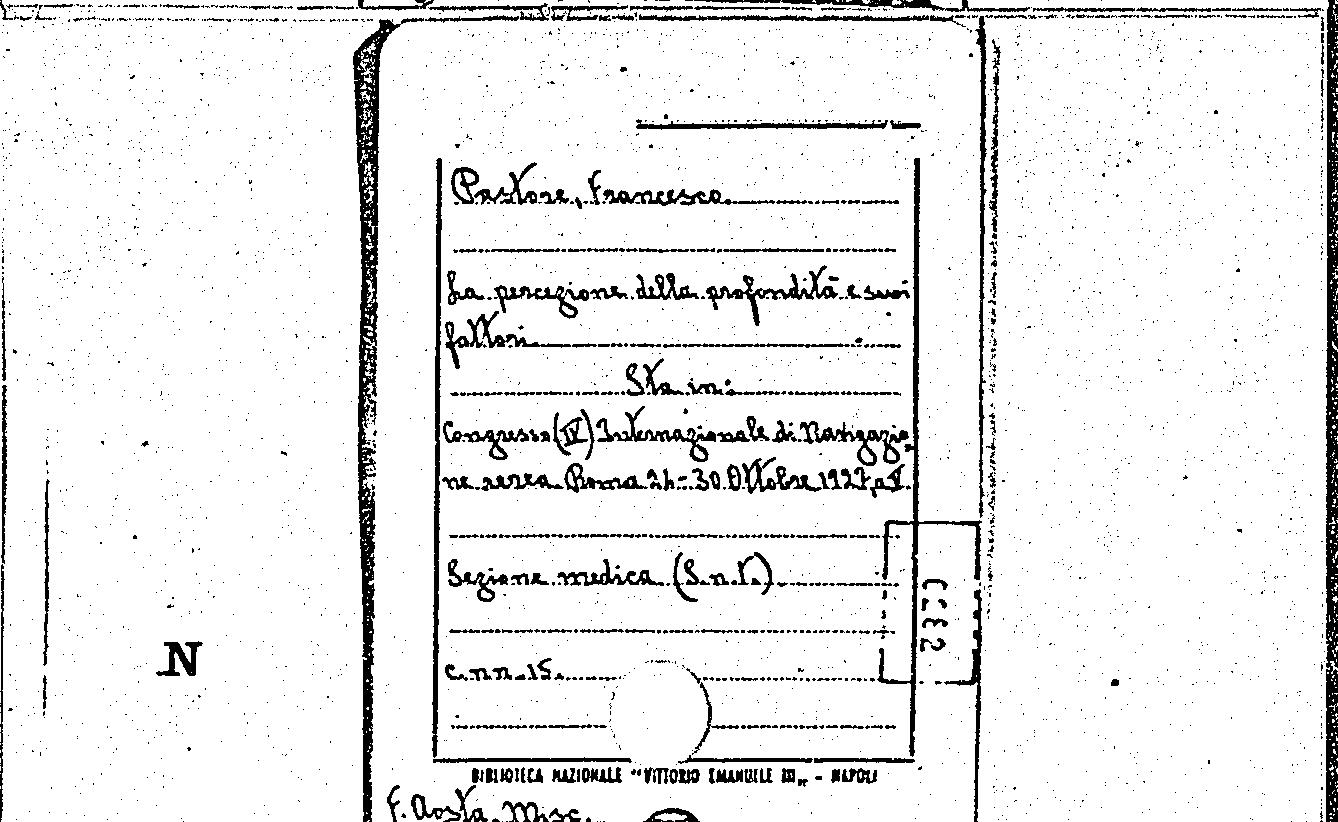 Pastore, Francesco
La percezione della profondità e suoi
fattori.
Sta in:
Congresso (IV) Internazionale di Navigazio-
ne aerea Roma 24-30 Ottobre 1927, a V.
Sezione medica (S.n.t.)
c. nn. 15.
N
BIBLIOTECA NAZIONALE "VITTORIO EMANUELE III„ - NAPOLI
F. Aosta, Misc.